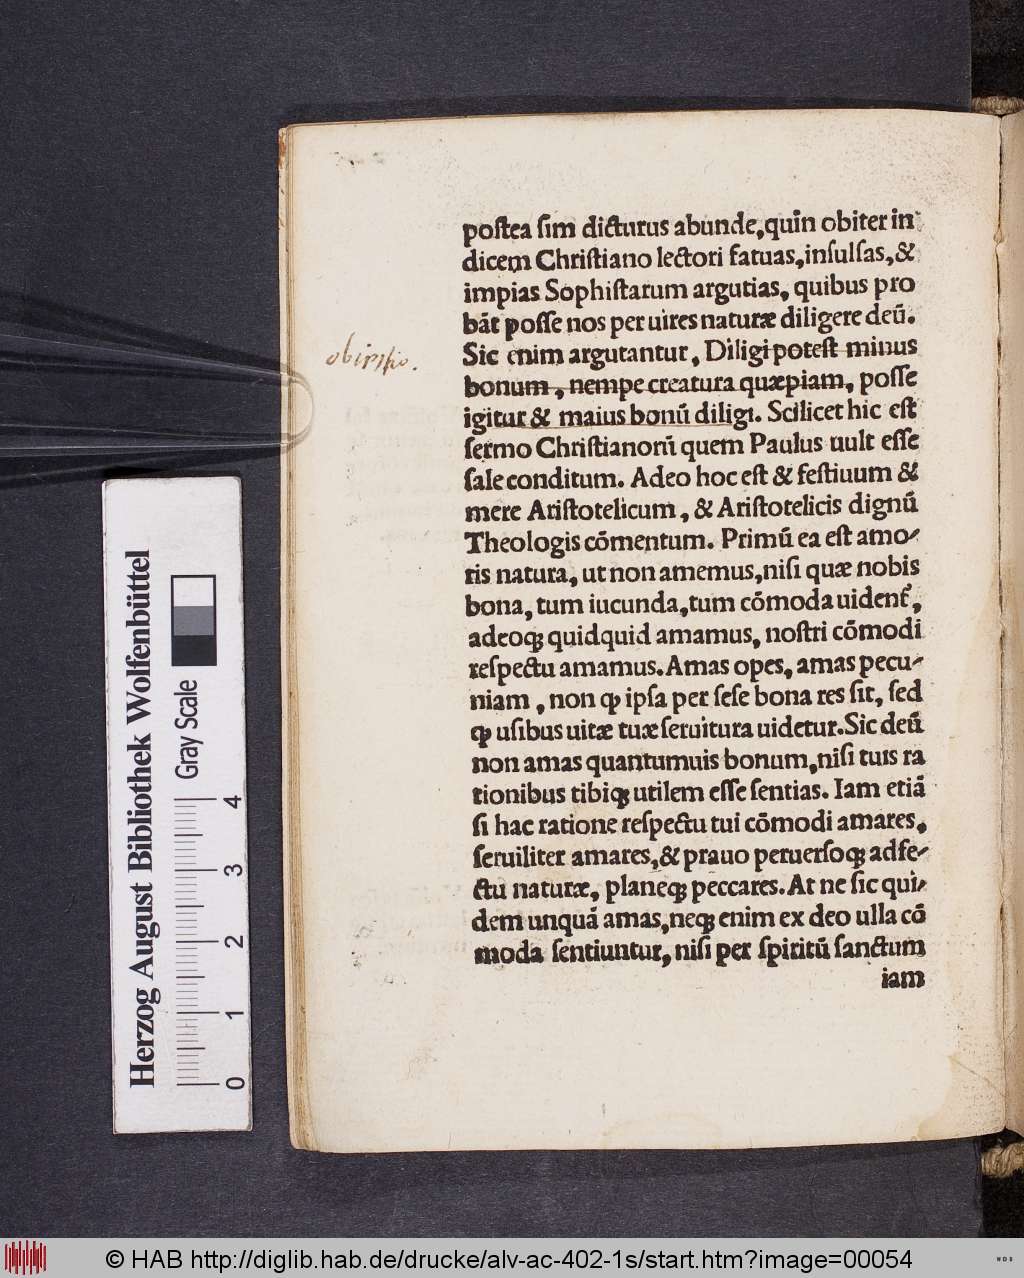 poſtea ſim dicturus abunde,quin obiter in
dicem Chriſtiano lectori fatuas,inſulſas,&
impias Sophiſtarum argutias, quibus pro
bāt poſſe nos per uires naturæ diligere deū.
Sic enim argutantur, Diligi poteſt minus
bonum, nempe creatura quæpiam, poſſe
igitur & maius bonū diligi. Scilicet hic eſt
ſermo Chriſtianorū quem Paulus uult eſſe
ſale conditum. Adeo hoc eſt & feſtiuum &
mere Ariſtotelicum, & Ariſtotelicis dignū
Theologis cōmentum. Primū ea eſt amo-
ris natura, ut non amemus,niſi quæ nobis
bona, tum iucunda,tum cōmoda uident᷑,
adeoqꝫ quidquid amamus, noſtri cōmodi
reſpectu amamus. Amas opes, amas pecu-
niam, non ꝙ ipſa per ſeſe bona res ſit, ſed
ꝙ uſibus uitæ tuæ ſeruitura uidetur. Sic deū
non amas quantumuis bonum,niſi tuis ra
tionibus tibiqꝫ utilem eſſe ſentias. Iam etiā
ſi hac ratione reſpectu tui cōmodi amares,
ſeruiliter amares,& prauo peruerſoqꝫ adfe-
ctu naturæ, planeqꝫ peccares. At ne ſic qui-
dem unquā amas,neqꝫ enim ex deo ulla cō
moda ſentiuntur, niſi per ſpiritū ſanctum
iam
Herzog August Bibliothek Wolfenbüttel
Gray Scale
0 1 2 3 4
© HAB http://diglib.hab.de/drucke/alv-ac-402-1s/start.htm?image=00054